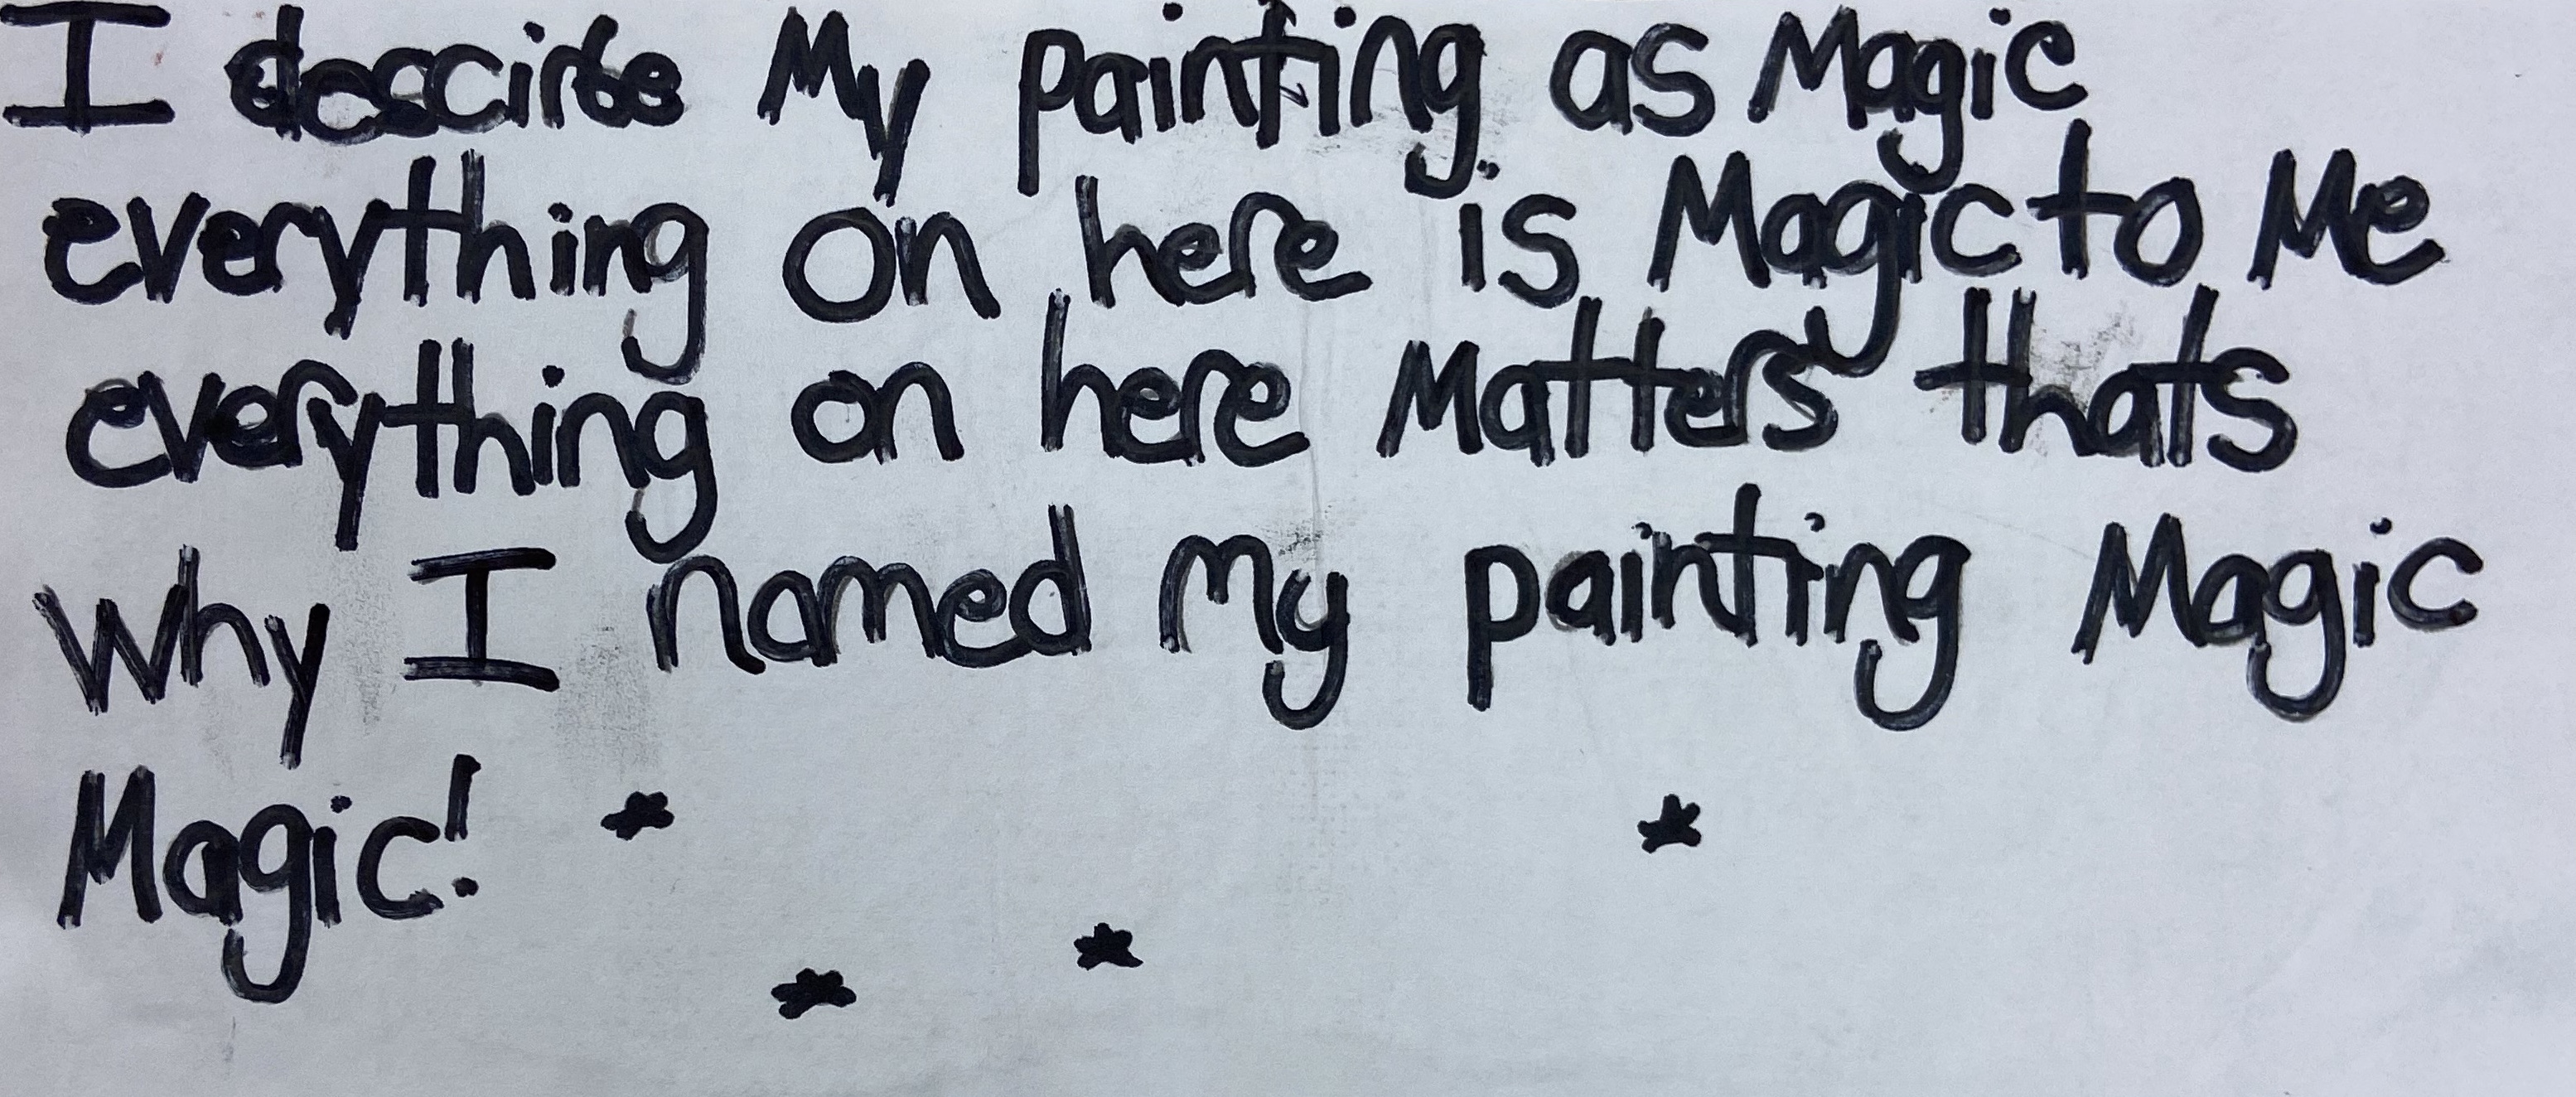 I descirbe My painting as Magic
everything on here is Magic to Me
everything on here Matters thats
Why I named My painting Magic
Magic!